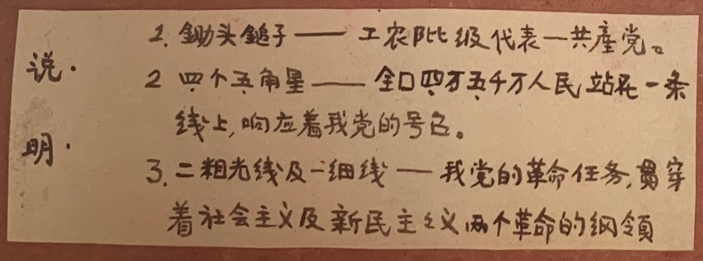 说·
明·
1. 锄头鎚子——工农阶级代表—共産党。
2 四个五角星——全口四万五千万人民站在一条
线上,响应着我党的号召。
3. 二粗光线及一细线——我党的革命任务,贯穿
着社会主义及新民主主义两个革命的纲领